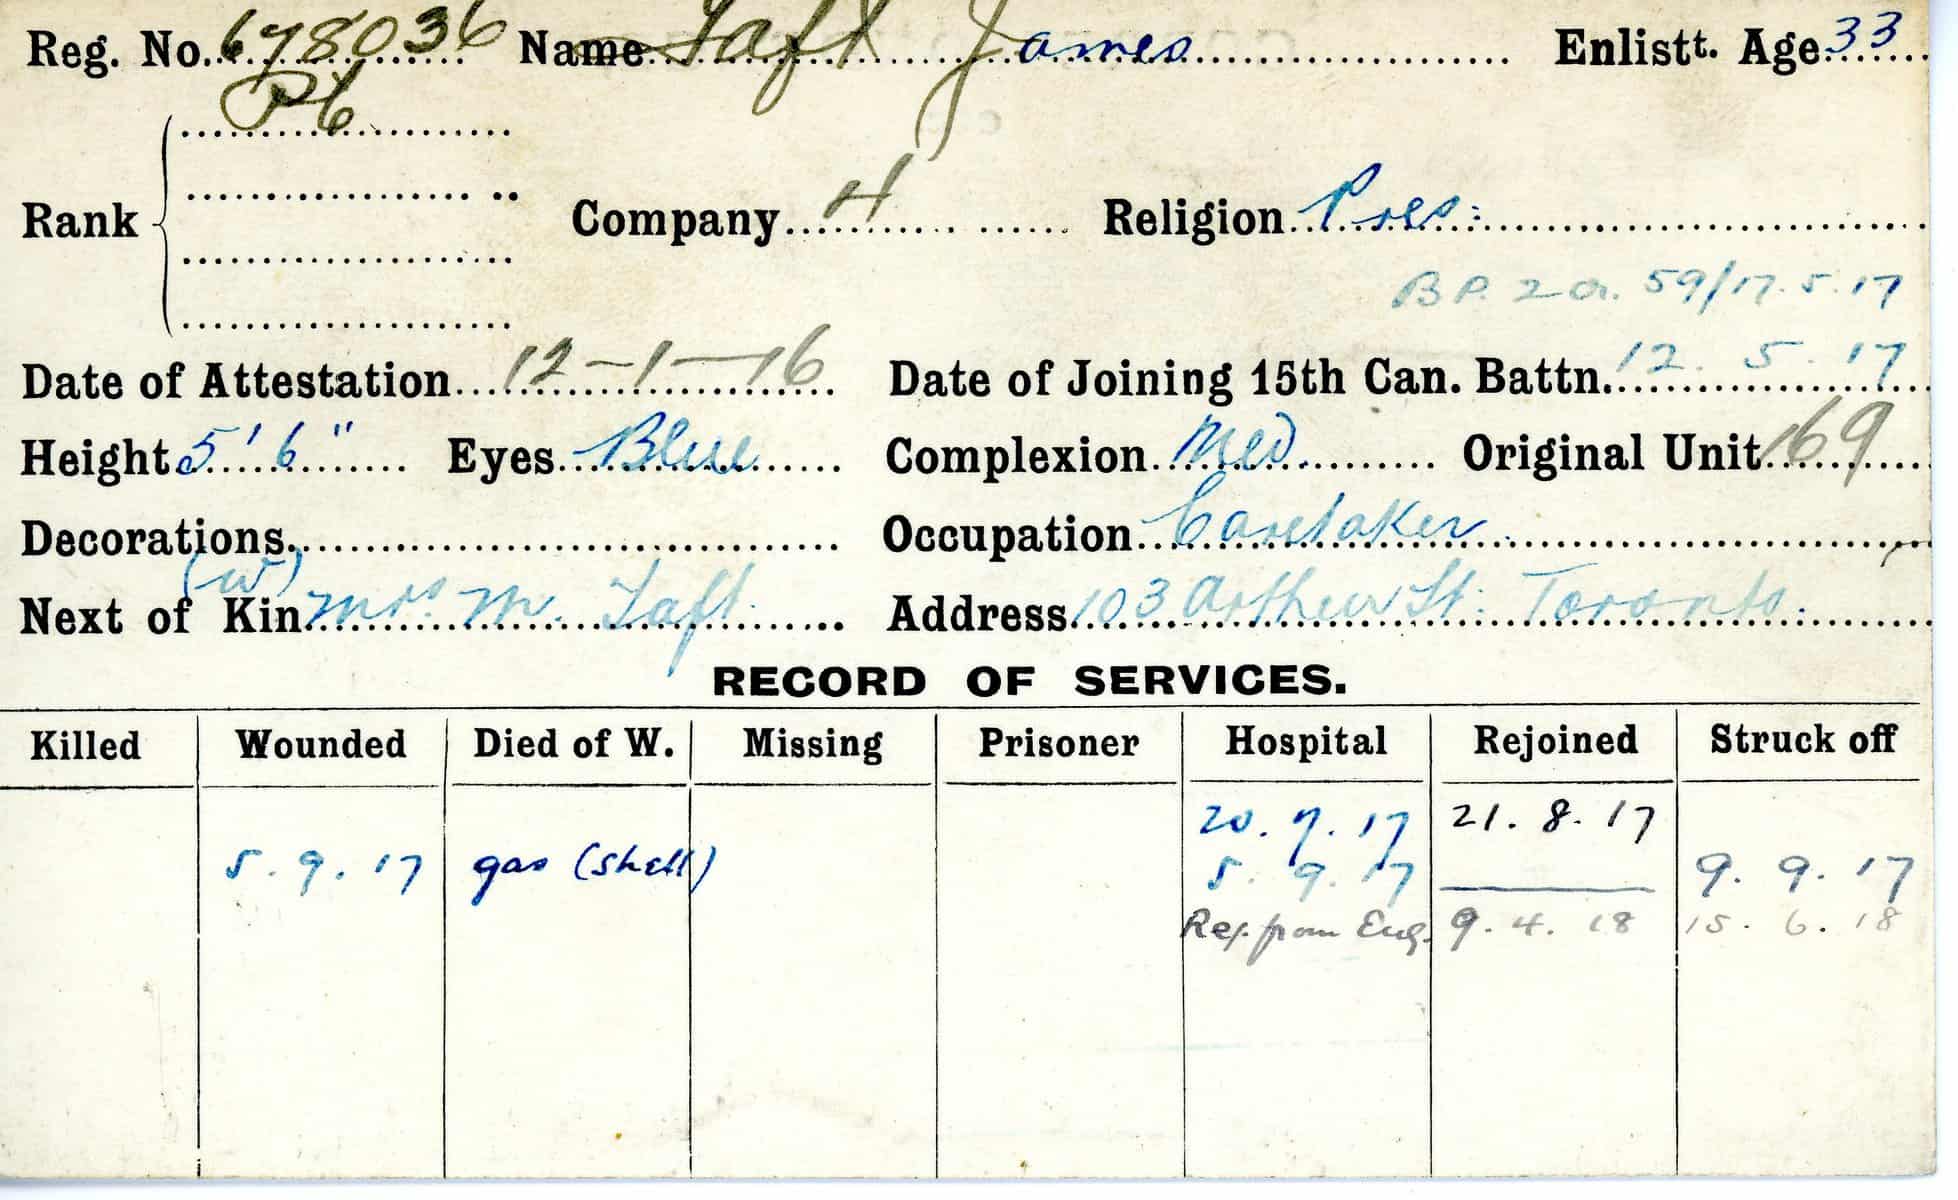 Reg. No. 678036 Name Taft James Enlistt. Age 33
Pte
Rank Company 4 Religion Pres:
B P. 2 a. 59/17.5.17
Date of Attestation 12-1-16 Date of Joining 15th Can. Battn. 12. 5. 17
Height 5' 6" Eyes Blue Complexion Med. Original Unit 169
Decorations Occupation Caretaker
(W)
Next of Kin Mrs. M. Taft. Address 103 Arthur St: Toronto:
RECORD OF SERVICES.
Killed Wounded Died of W. Missing Prisoner Hospital Rejoined Struck off
20. 7. 17 21. 8. 17
5. 9. 17 gas (shell) 5. 9. 17 9. 9. 17
Rej. from Eng. 9. 4. 18 15. 6. 18